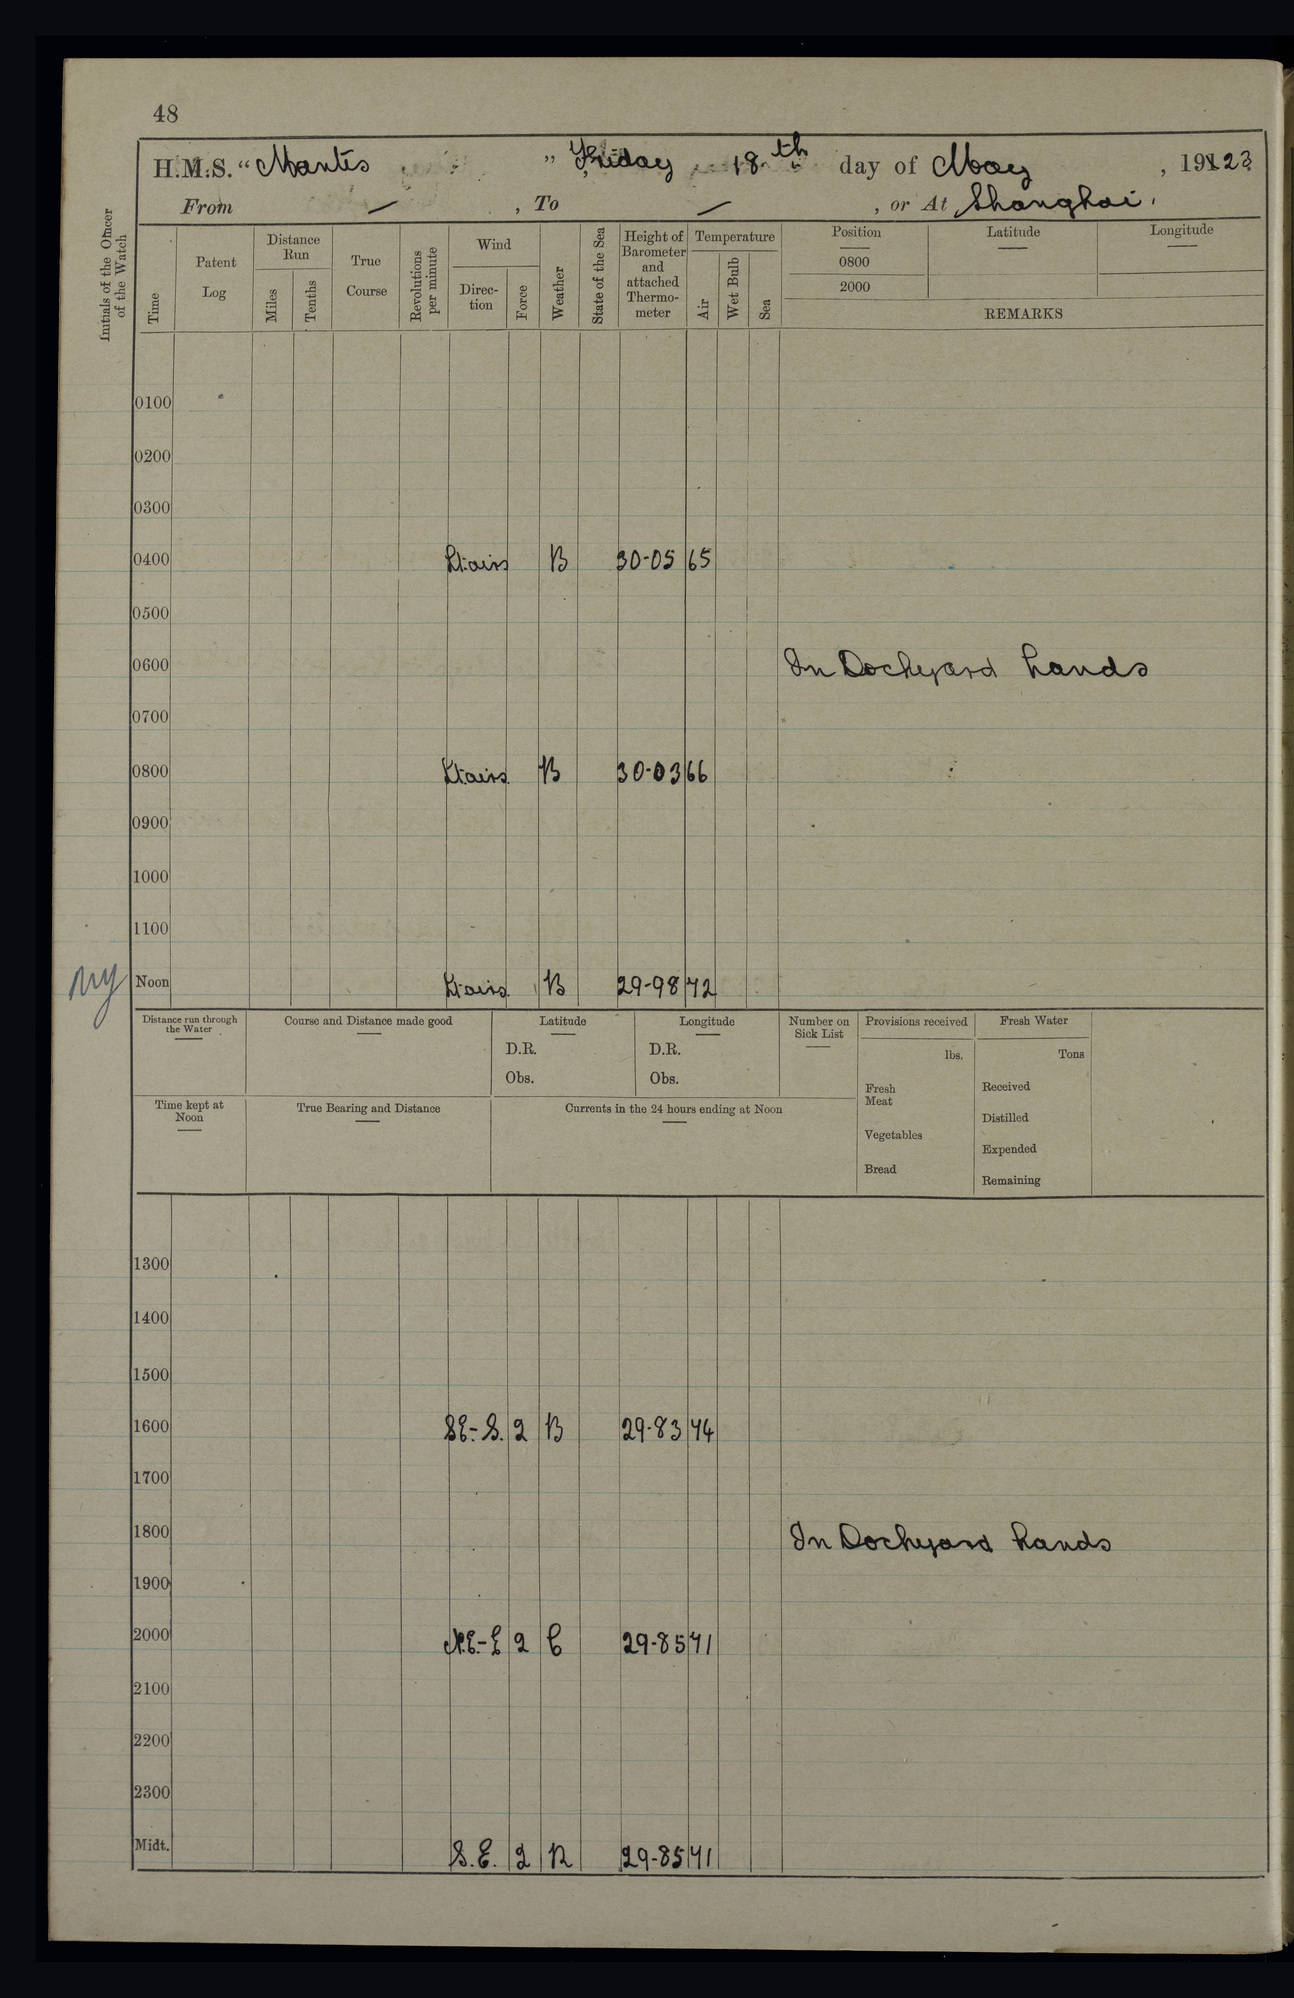 48
H.M.S. “Mantis ” Friday 18th day of May , 1923
From — , To — , or At Shanghai.
Initials of the Officer of the Watch
Time
Patent Log
Distance Run
Miles
Tenths
True Course
Revolutions per minute
Wind
Direc-tion
Force
Weather
State of the Sea
Height of Barometer and attached Thermo-meter
Temperature
Air
Wet Bulb
Sea
Position
0800
2000
Latitude
Longitude
REMARKS
0100
0200
0300
0400 Lt. airs B 30-05 65
0500
0600 In Dockyard hands
0700
0800 Lt. airs B 30-03 66
0900
1000
1100
Noon Lt. airs B 29-98 72
Distance run through the Water
Course and Distance made good
Latitude
D.R.
Obs.
Longitude
D.R.
Obs.
Number on Sick List
Provisions received
lbs.
Fresh Meat
Vegetables
Bread
Fresh Water
Tons
Received
Distilled
Expended
Remaining
Time kept at Noon
True Bearing and Distance
Currents in the 24 hours ending at Noon
1300
1400
1500
1600 SE-S. 2 B 29-83 74
1700
1800 In Dockyard hands
1900
2000 N.E-E 2 C 29-85 71
2100
2200
2300
Midt. S.E. 2 R 29-85 71